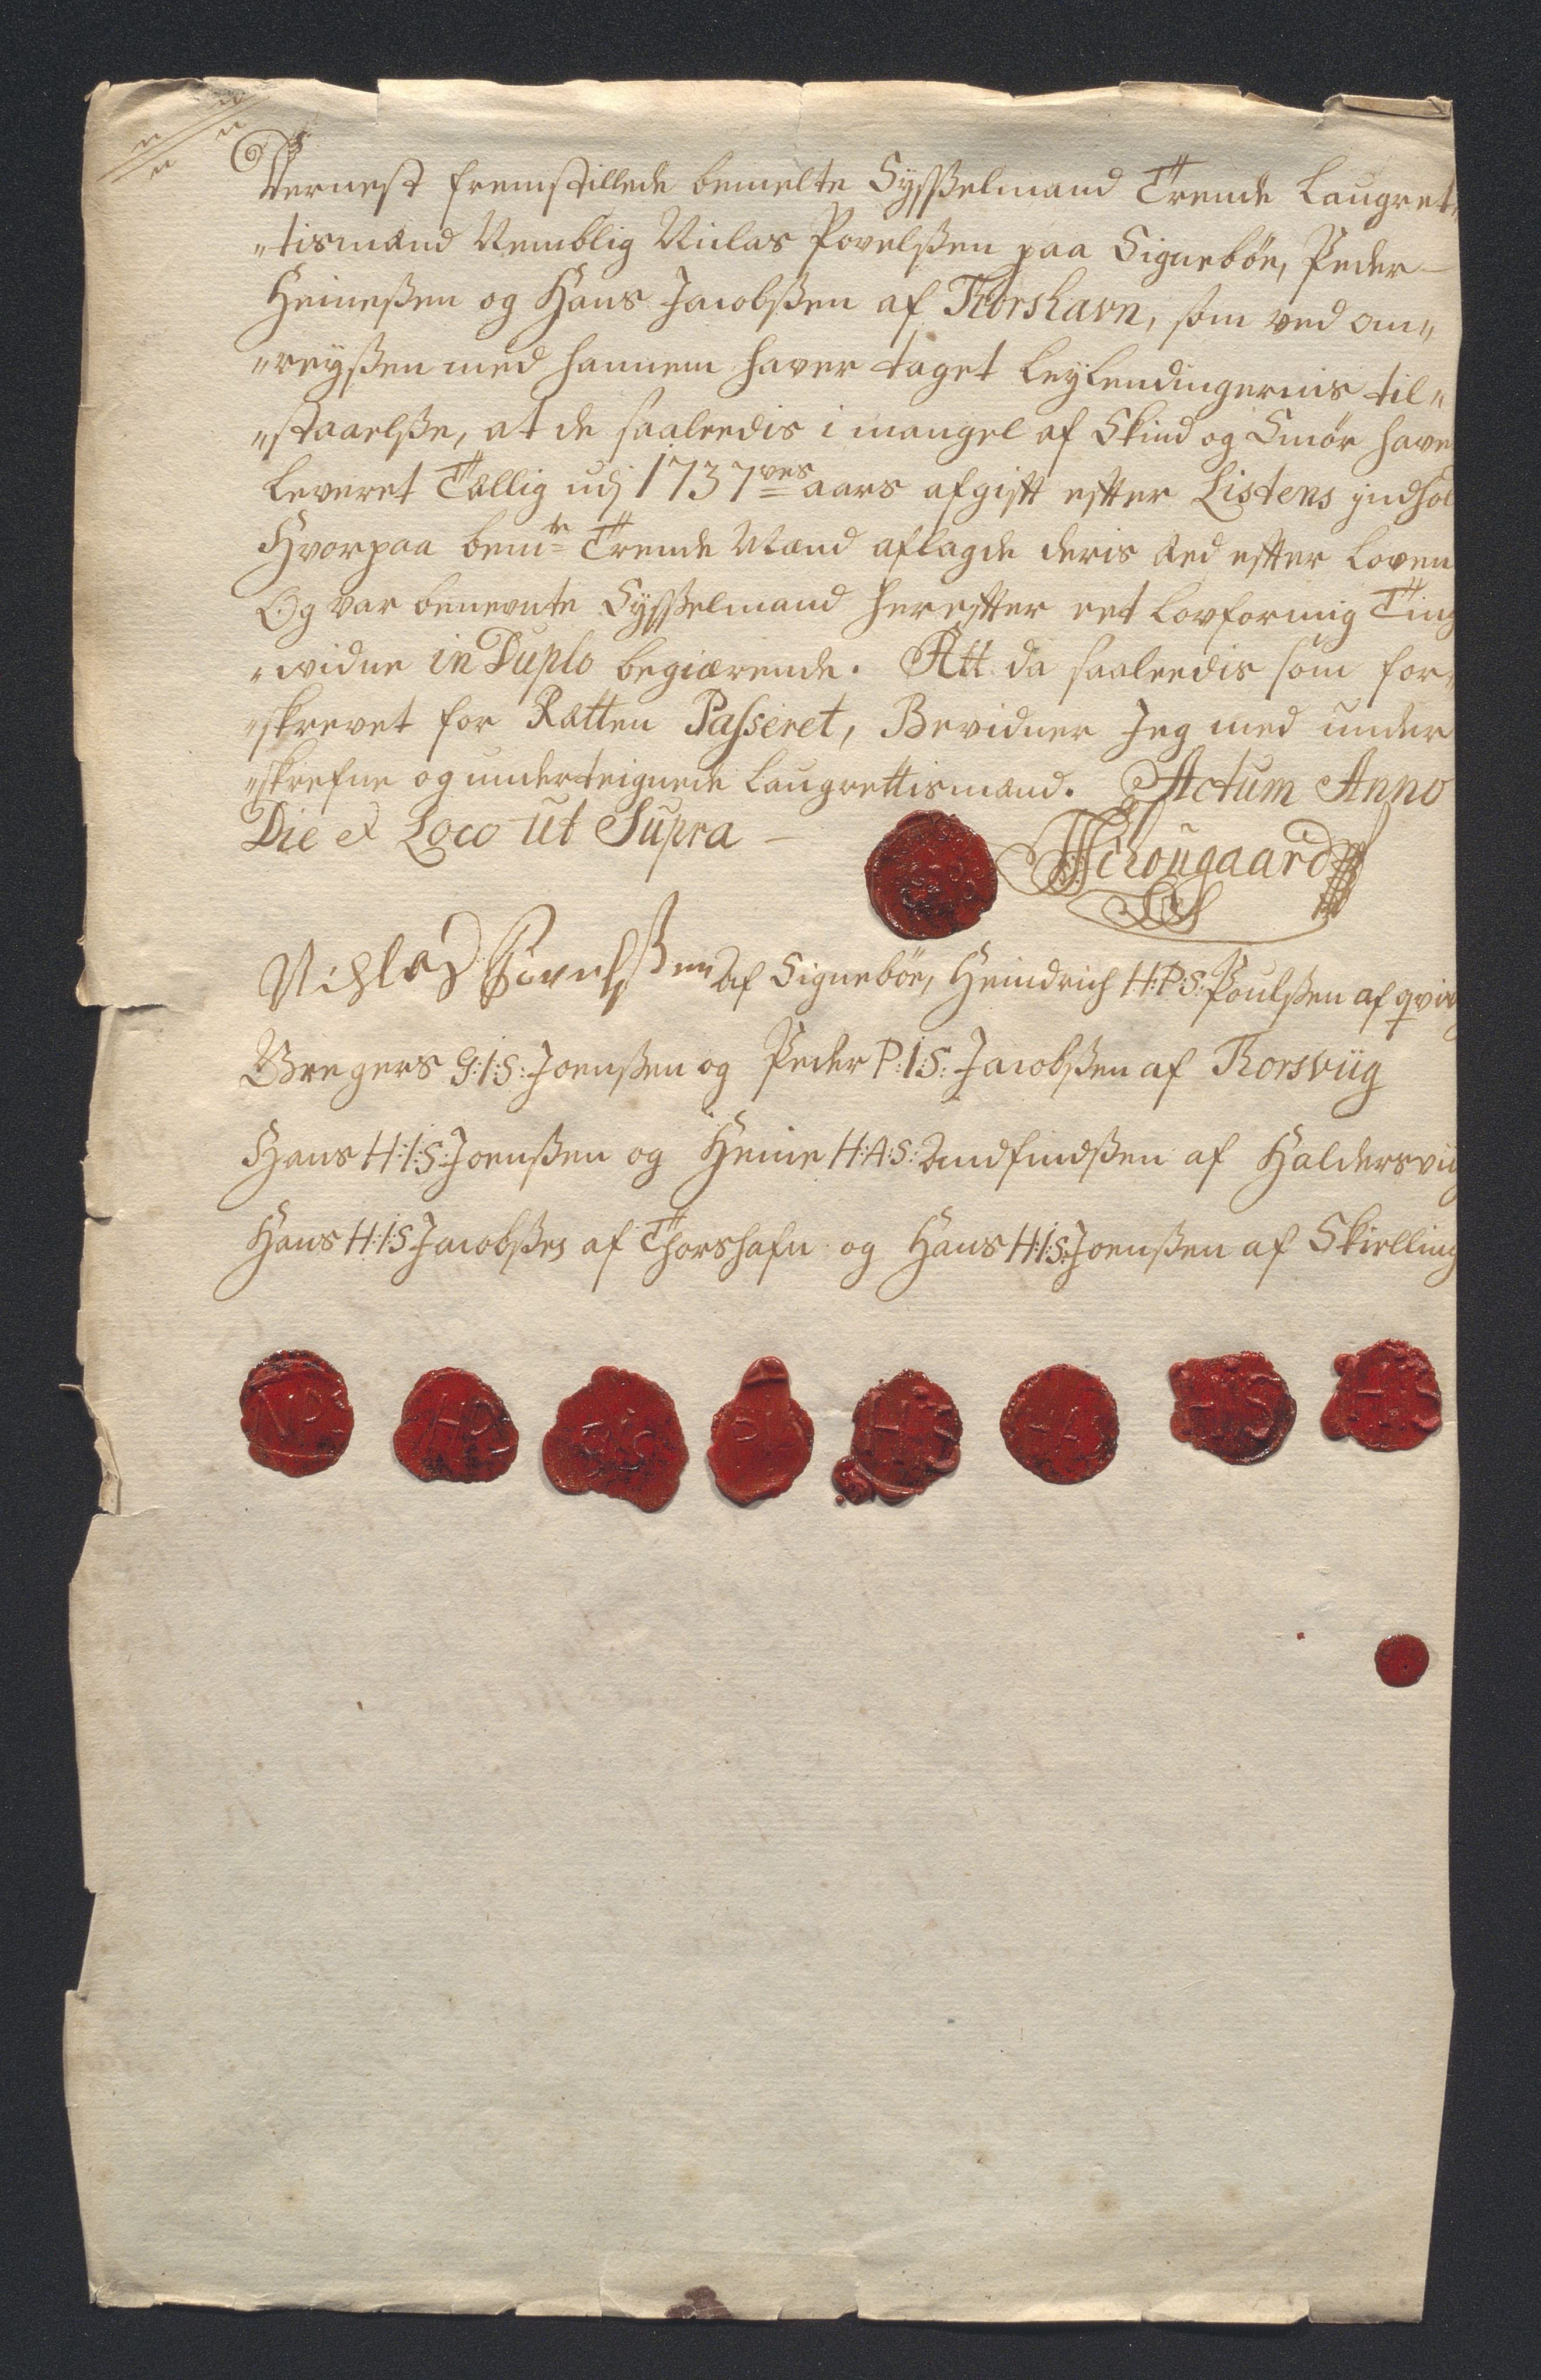 Dernest fremstillede bemelte Sysselmand Trende Laugret„
„tismænd Nemblig Niclas Povelßen paa Signebøe, Peder
Heineßen og Hans Jacobßen af Thorshavn, som ved om„
„reyßen med hannem haver taget Leylendingernis til„
„staaelße, at de saaleedis i mangel af Skind og Smør have
leveret Tællig udj 1737ves aars afgift efter Listens jndhol
Hvorpaa bemte Trende Mænd aflagde deris Æed efter Loven
Og var benevnte Sysselmand herefter eet lovformig Ting
„vidne in Duplo begiærende. Att da saaleedis som for„
„skrevet for Rætten Passeret, Bevidner Jeg med under
„skrefne og underteignede Laugrettismænd. Actum Anno
Die et Loco ut Supra
Schougaard
Nichlas Povelßen af Signebøe, Heindrich H:P:S: Poulßen af qviv
Gregers G:I:S: Joenßen og Peder P:I:S: Jacobßen af Thorsviig
Hans H:I:S: Joenßen og Heine H:A:S: Andfindßen af Haldersviig
Hans H:I:S Jacobßen af Thorshafn og Hans H:I:S: Joenßen af Skielling
NPS HPS GIS PIS HIS HAS HIS HIS